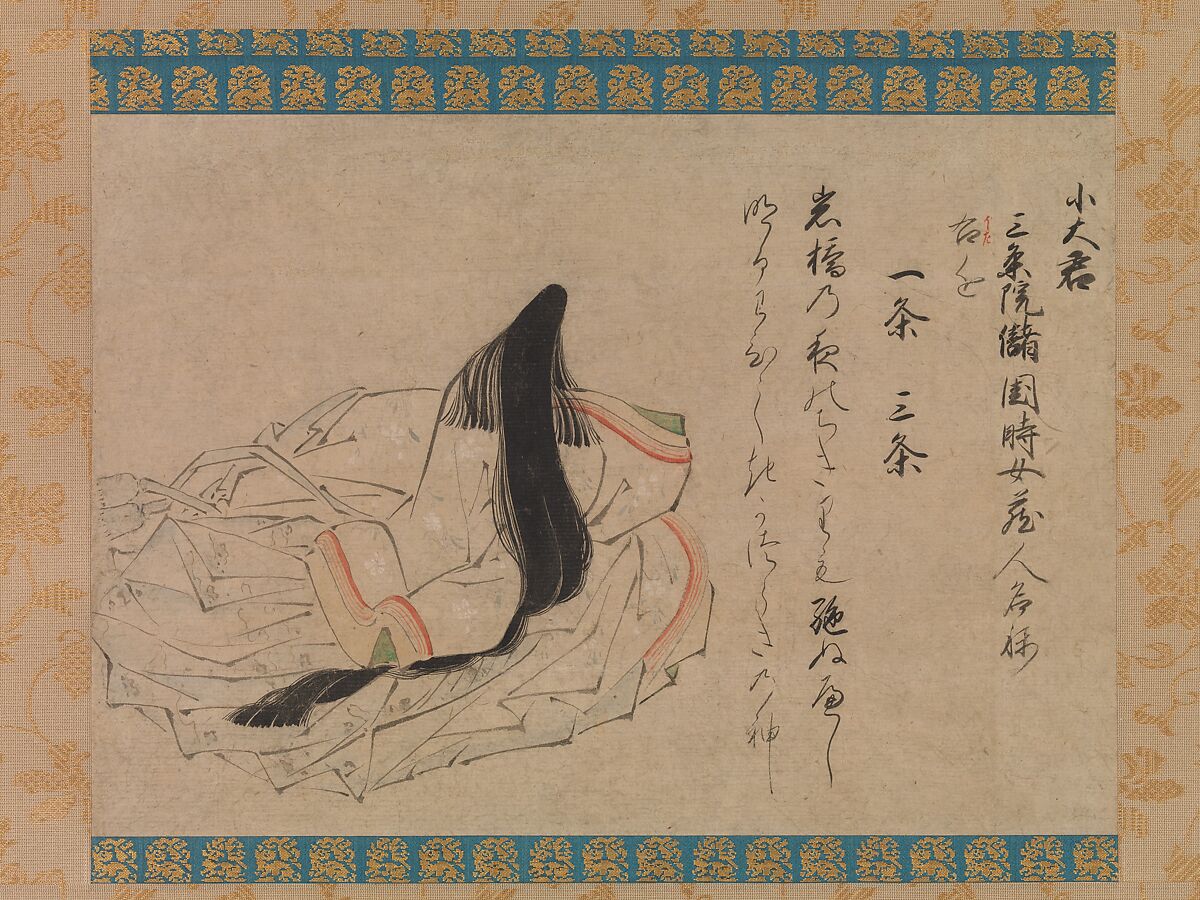 小大君
三条院儲國時女蔵人名稱
右近
一条 三条
岩橋の夜のちきりも絶ぬへし
明るわひしきかつらきの神